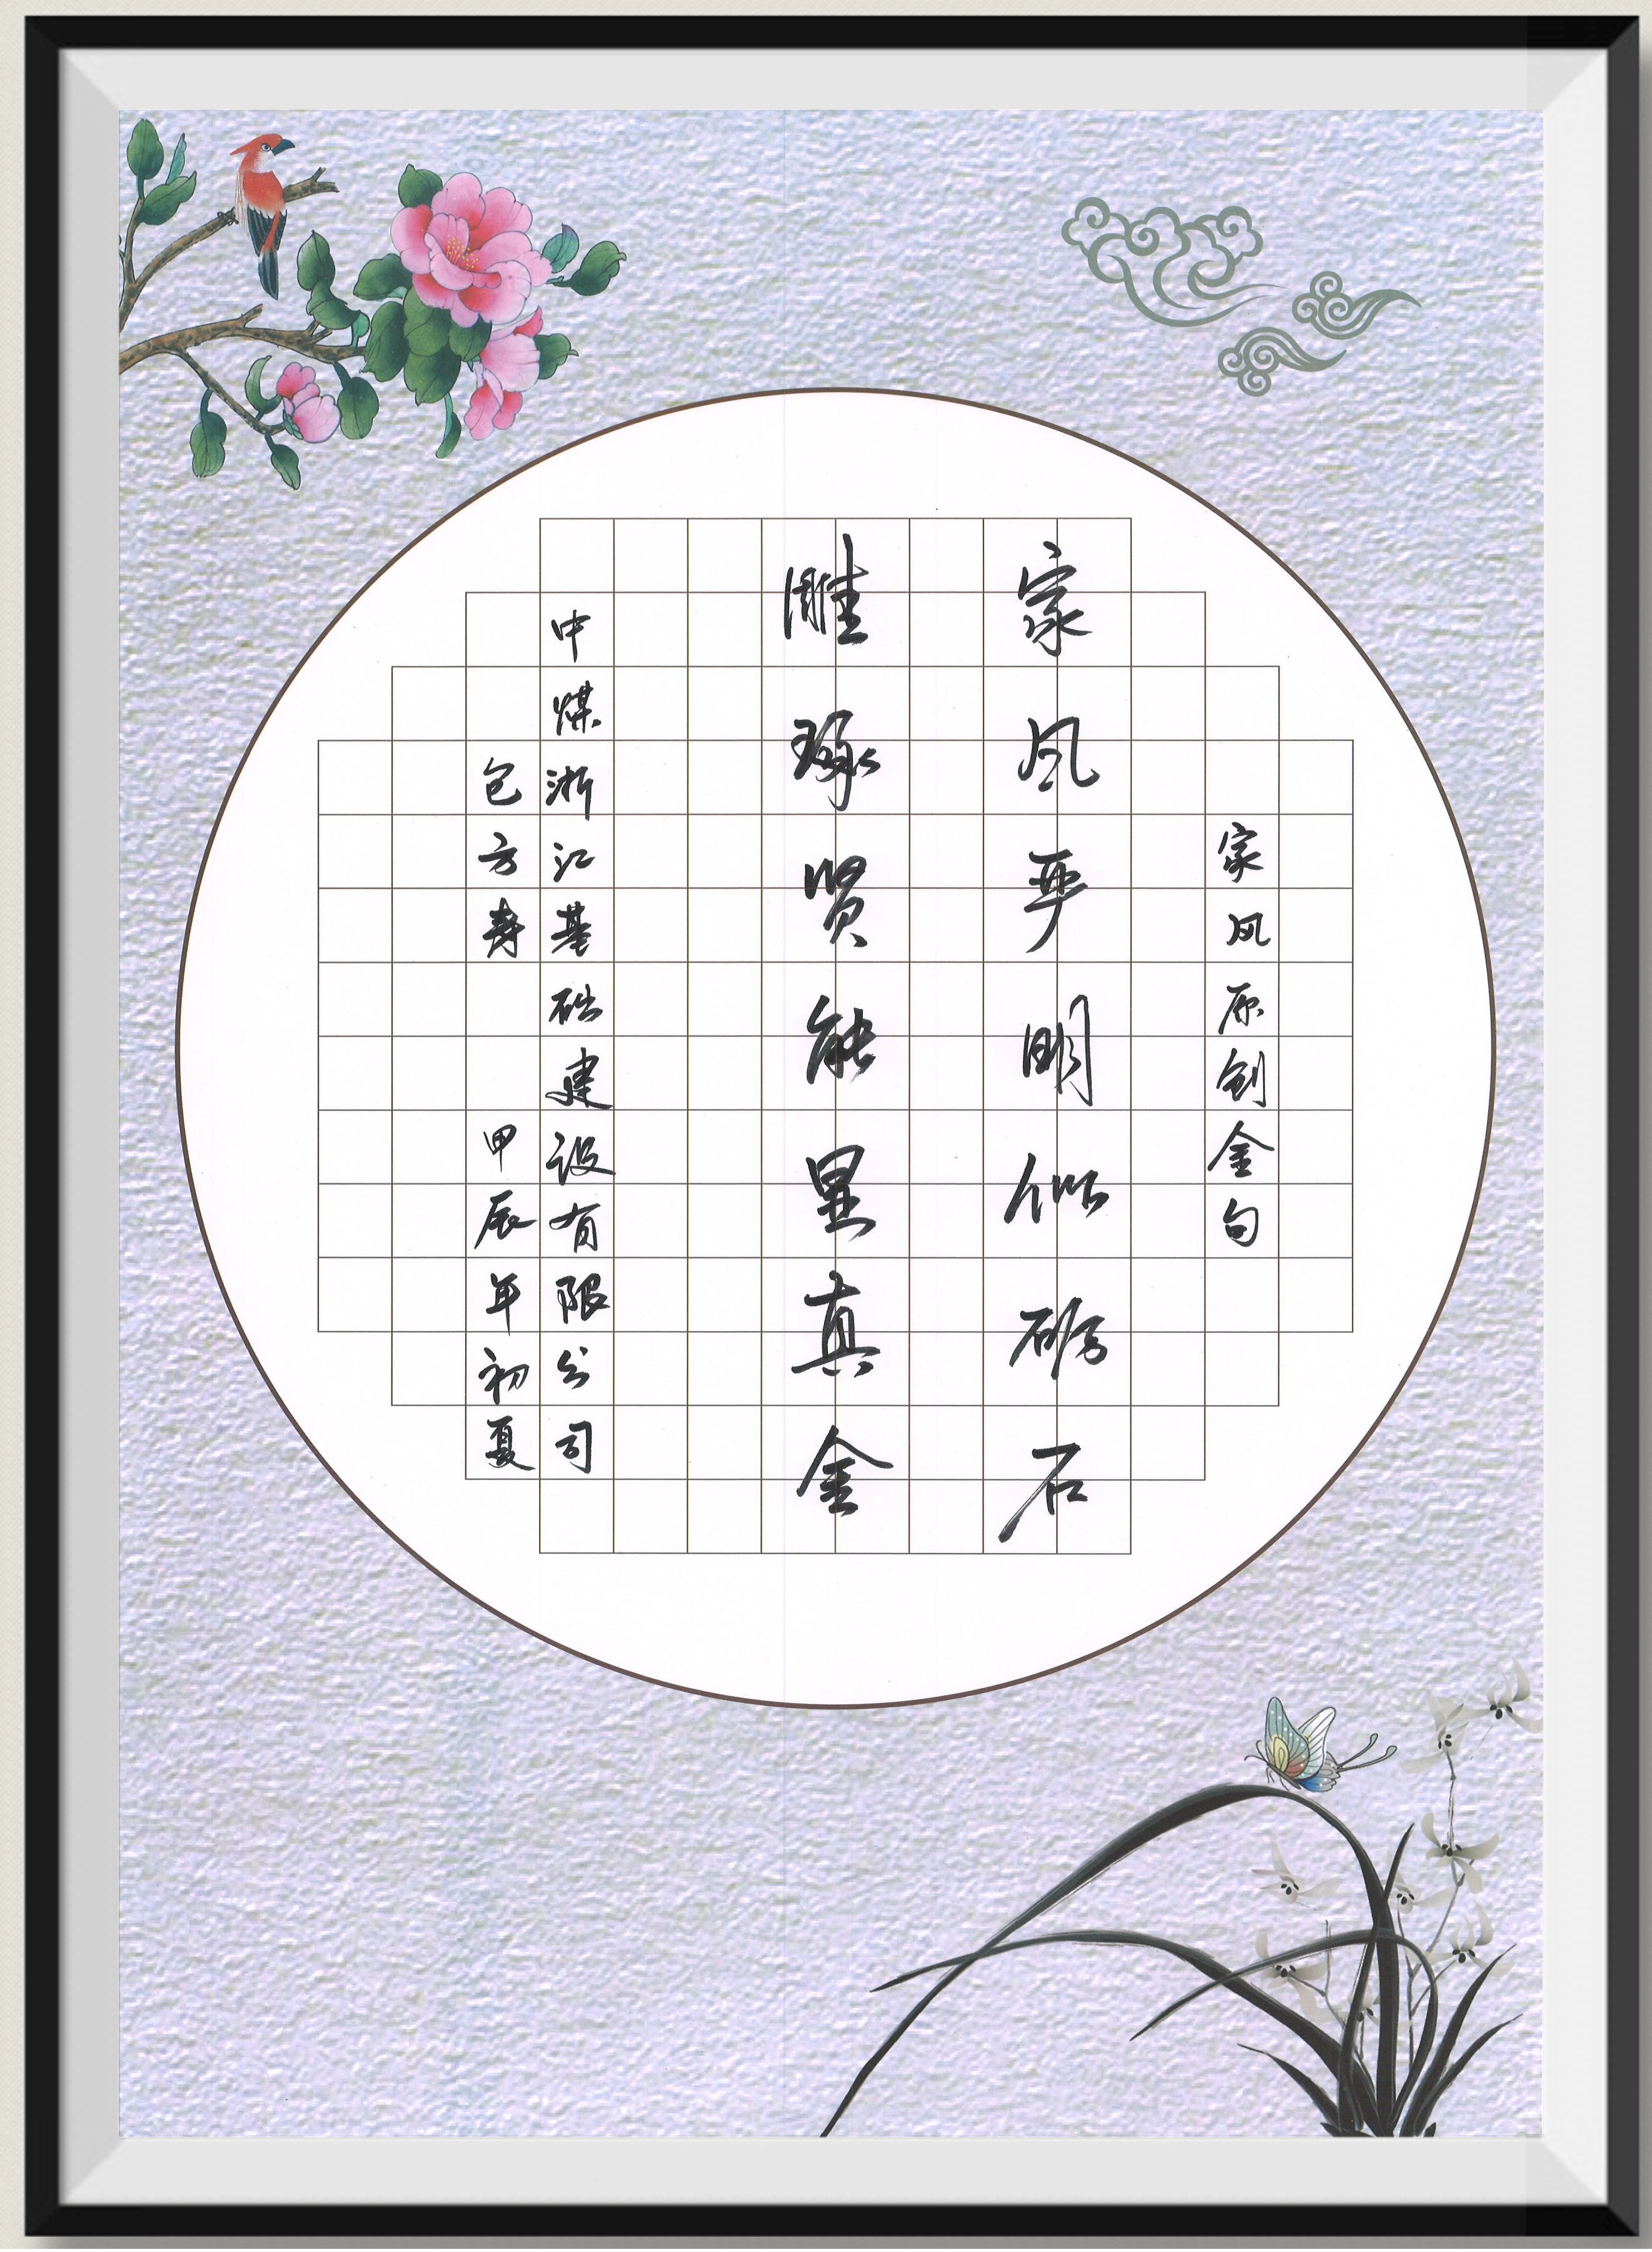 家风原创金句
家风严明似砺石
雕琢贤能显真金
中煤浙江基础建设有限公司
包方寿 甲辰年初夏